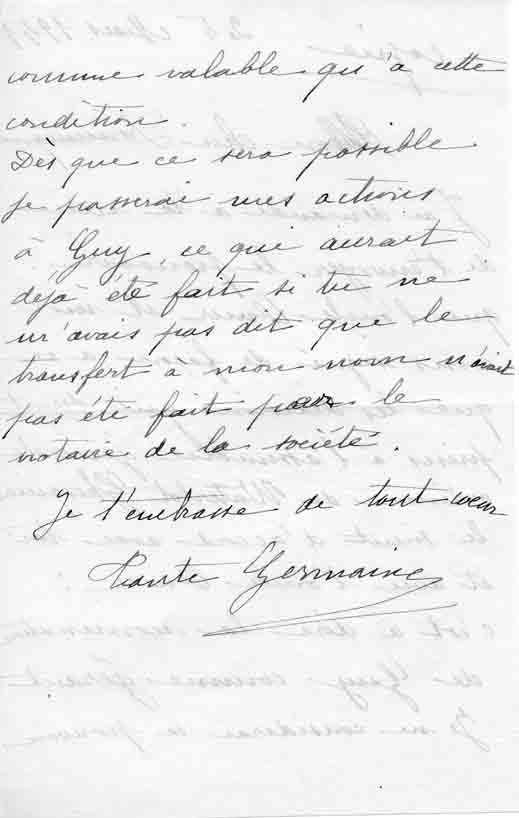 comme valable qu'à cette
condition.
Dès que ce sera possible
je passerai mes actions
à Guy, ce qui aurait
déjà été fait si tu ne
m'avais pas dit que le
transfert à mon nom n'avait
pas été fait par le
notaire de la société.
Je t'embrasse de tout coeur
Tante Germaine